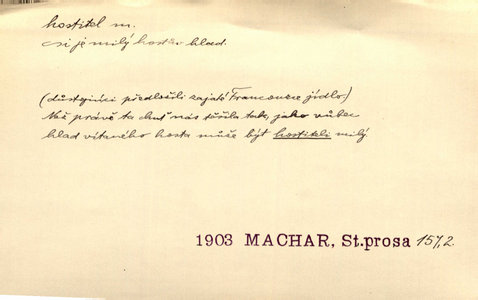 hostitel m.
čí je milý hostův hlad.
(důstojníci předložili zajaté Francouze jídlo)
Než právě ta chuť nás těšila tak, jako vůbec
hlad vítaného hosta může být hostiteli milý.
1903 MACHAR, St.prosa 157,2.